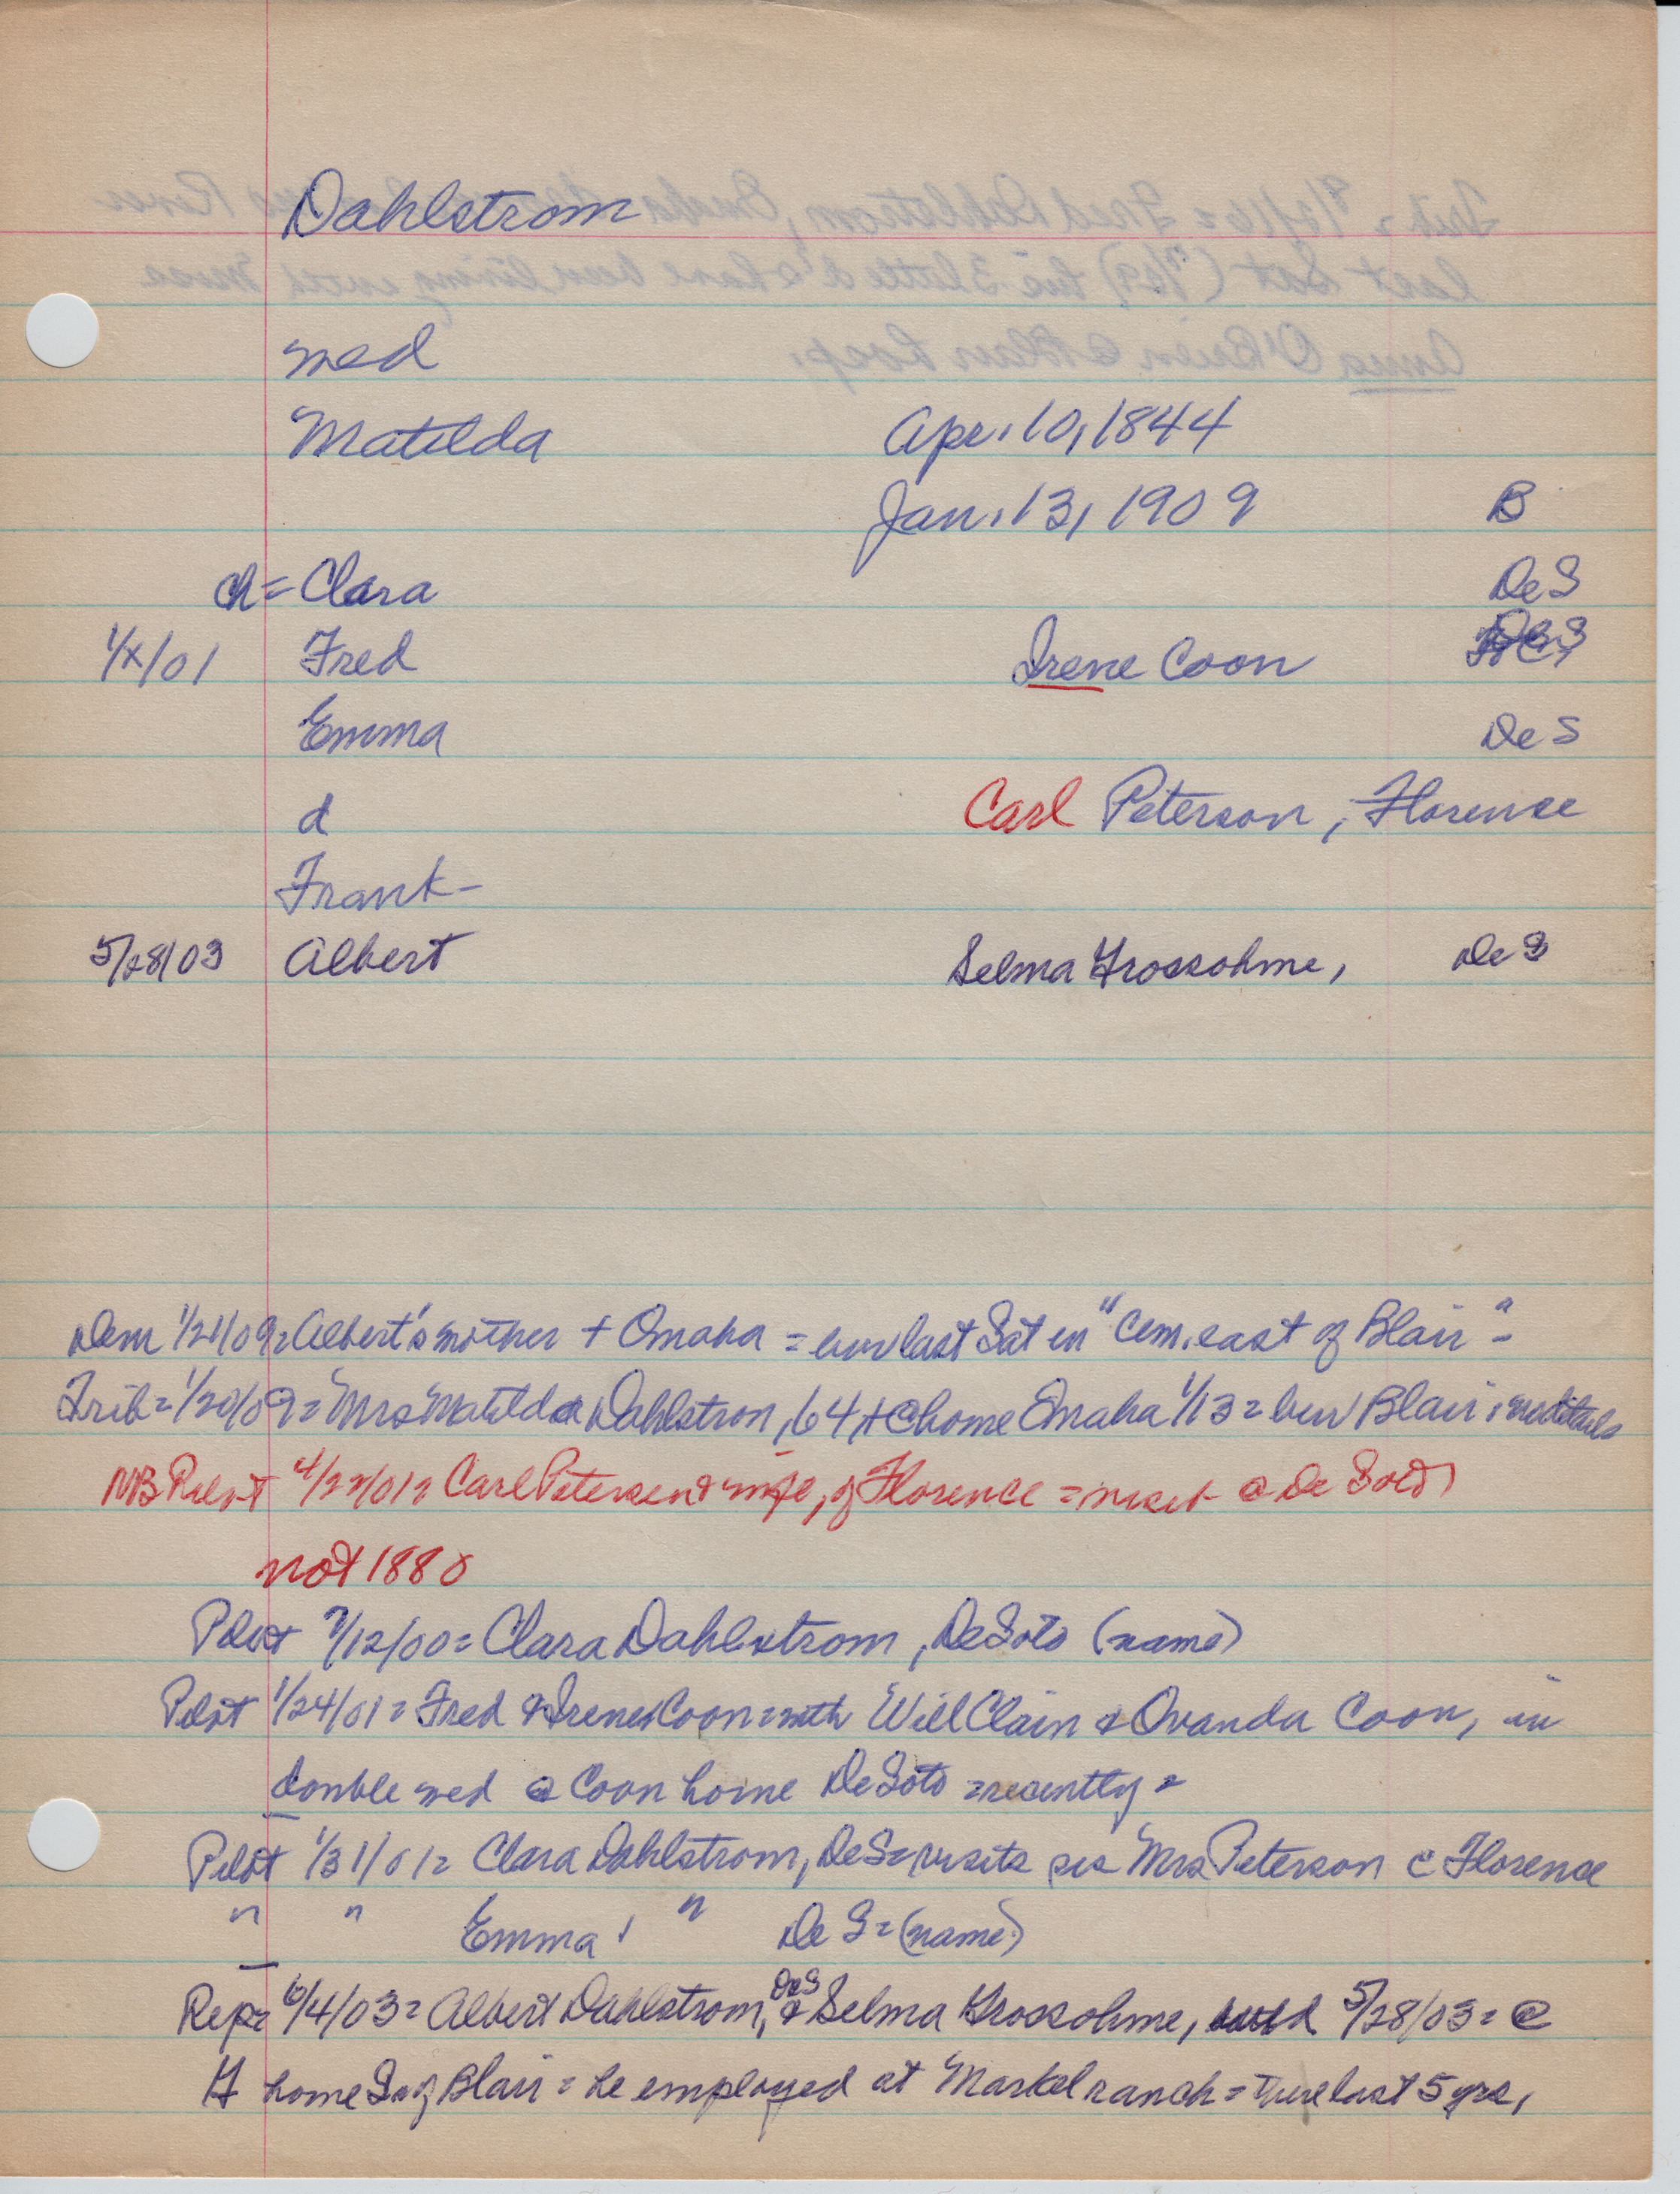 Dahlstrom
wed
Matilda Apr. 10, 1844
Jan. 13, 1909 B
ch = Clara DeS
1/x/01 Fred Irene Coon DeS
Emma DeS
d Carl Peterson, Florence
Frank -
5/28/03 Albert Selma Grossohme, DeS
Dem 1/21/09 = Albert's mother + Omaha = bur last Sat in "Cem. east of Blair" =
Trib = 1/20/09 = Mrs Matilda Dahlstrom, 64, + @ home Omaha 1/13 = bur Blair,
Pilot 4/ /01 = Carl Petersen & wife, of Florence = visit @ De Soto
not 1880
Pilot 7/12/00 = Clara Dahlstrom, DeSoto (name)
Pilot 1/24/01 = Fred & Irene Coon = with Will Clain & Ovanda Coon, in
double wed @ Coon home DeSoto = recently =
Pilot 1/31/01 = Clara Dahlstrom, DeS = visits sis Mrs Peterson @ Florence
" " Emma " De S = (name)
Rep = 6/4/03 = Albert Dahlstrom, DeS & Selma Grossohme, wed 5/28/03 = @
G home S of Blair = he employed at Markel ranch = there last 5 yrs,